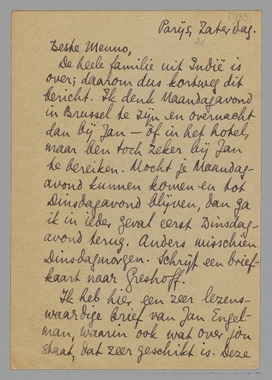 Parijs, Zaterdag.
Beste Menno,
De heele familie uit Indië is
over; daarom dus kortweg dit
bericht. Ik denk Maandagavond
in Brussel te zijn en overnacht
dan bij Jan — of in het hotel,
maar ben toch zeker bij Jan
te bereiken. Mocht je Maandag-
avond kunnen komen en tot
Dinsdagavond blijven, dan ga
ik in ieder geval eerst Dinsdag-
avond terug. Anders misschien
Dinsdagmorgen. Schrijf een brief-
kaart naar Greshoff.
Ik heb hier een zeer lezens-
waardige brief van Jan Engel-
man, waarin ook wat over jou
staat, dat zeer geschikt is. Deze